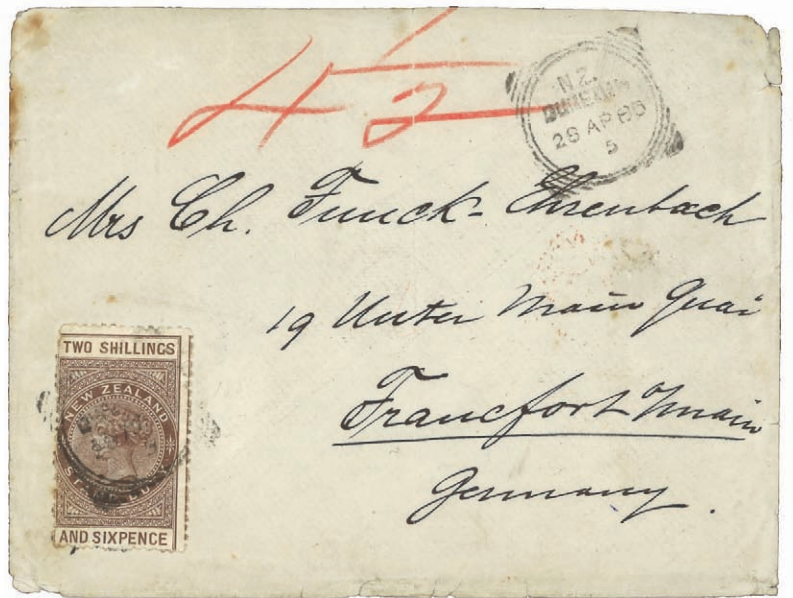 4 1/2
N.Z.
DUNEDIN
28 AP 86
5
Mrs Ch. Funck-Ehrenbach
19 Unter Main Quai
Francfort o/main
Germany.
TWO SHILLINGS
NEW ZEALAND
STAMP DUTY
AND SIXPENCE